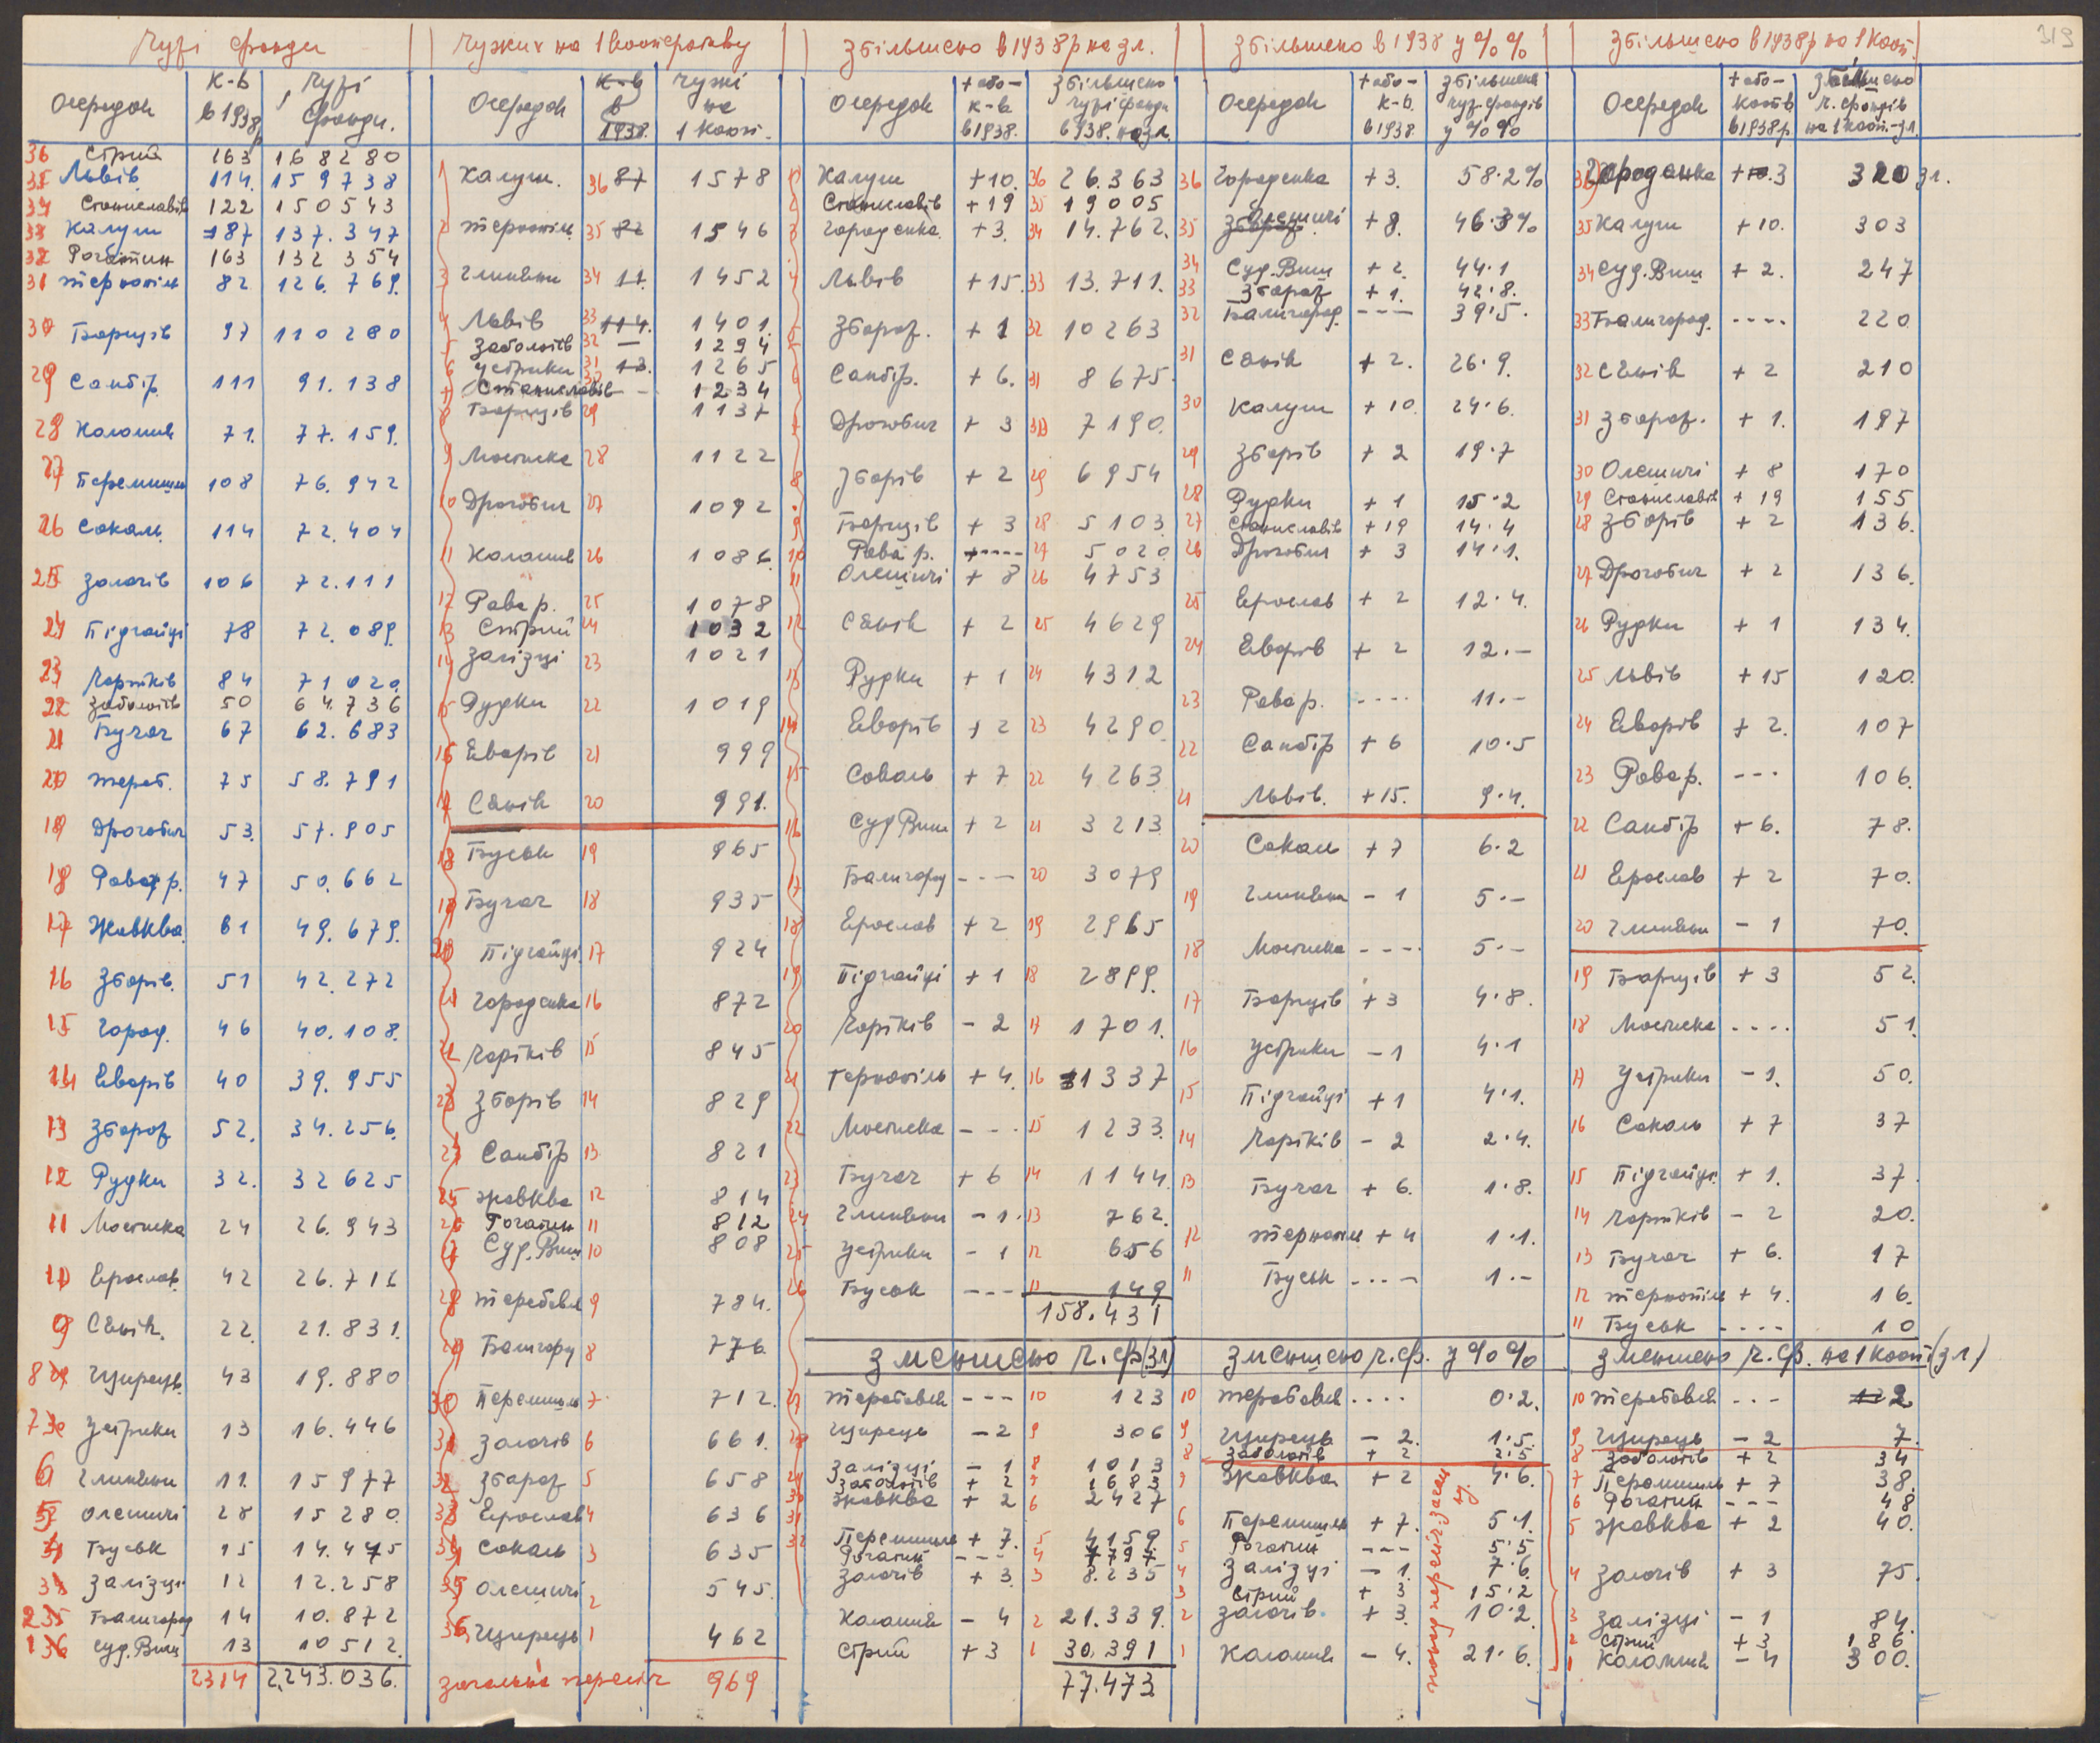 319
Чужі фонди
К-в Чужі
Осередок в 1938р фонди.
36 Стрий 163 168280
35 Львів 114. 159738
34 Станиславів 122 150543
33 Калуш 87 137.347
32 Рогатин 163 132354
31 Тернопіль 82 126.769.
30 Борщів 97 110280
29 Самбір 111 91.138
28 Коломия 71. 77.159.
27 Перемишль 108 76.942
26 Сокаль 114 72.404
25 Золочів 106 72.111
24 Підгайці 78 72.089.
23 Чортків 84 71020.
22 Заболотів 50 64.736
21 Бучач 67 62.683
20 Тереб. 75 58.791
19 Дрогобич 53. 57.905
18 Рава р. 47 50.662
17 Жовква 61 49.679.
16 Зборів. 51 42.272
15 Город. 46 40.108.
14 Яворів 40 39.955
13 Збараж 52. 34.256.
12 Рудки 32. 32625
11 Мостиска 24 26.943
10 Ярослав. 42 26.716
9 Сянік. 22. 21.831.
8 Щирець. 43 19.880
7 Устрики 13 16.446
6 Глиняни 11. 15977
5 Олешичі 28 15280.
4 Буськ 15 14.475
3 Залізці 12 12.258
2 Балигород 14 10.872
1 Суд. Виш 13 10512.
2314 2,243.036.
Чужих на 1 кооперативу
К-в Чужі
Осередок в 1938. на 1 кооп.
1 Калуш. 36 87 1578
2 Тернопіль 35 82 1546
3 Глиняни 34 11. 1452
4 Львів 33 114. 1401.
5 Заболотів 32 — 1294
6 Устрики 31 13. 1265
7 Станиславів 30 - 1234
8 Борщів 29 1137
9 Мостиска 28 1122
10 Дрогобич 27 1092
11 Коломия 26 1086.
12 Рава р. 25 1078
13 Стрий 24 1032
14 Залізці 23 1021
15 Рудки 22 1019
16 Яворів 21 999
17 Сянік 20 991.
18 Буськ 19 965
19 Бучач 18 935
20 Підгайці. 17 924
21 Городенка 16 872
22 Чортків 15 845
23 Зборів 14 829
24 Самбір 13. 821
25 Жовква 12 814
26 Рогатин 11 812
27 Суд. Виш 10 808
28 Теребовля 9 784.
29 Балигород 8 776.
30 Перемишль 7 712.
31 Золочів 6 661.
32 Збараж 5 658
33 Ярослав 4 636
34 Сокаль 3 635
35 Олешичі 2 545.
36 Щирець 1 462
загальна пересіч 969
Збільшено в 1938р на зл.
+ або - збільшено
Осередок к-в. чужі фонди
в 1938. в 938. на зл.
1 Калуш +10. 36 26.363
2 Станиславів +19 35 19005
3 Городенка. +3. 34 14.762.
4 Львів +15. 33 13.711.
5 Збараж. +1 32 10263
6 Самбір. +6. 31 8675.
7 Дрогобич +3 30 7190.
8 Зборів +2 29 6954
9 Борщів +3 28 5103.
10 Рава р. ---- 27 5020.
11 Олешичі +8 26 4753
12 Сянік +2 25 4629
13 Рудки +1 24 4312
14 Яворів +2 23 4290.
15 Сокаль +7 22 4263
16 Суд Виш +2 21 3213.
17 Балигород --- 20 3079
18 Ярослав +2 19 2965
19 Підгайці +1 18 2899.
20 Чортків -2 17 1701.
21 Тернопіль +4. 16 1337
22 Мостиска --- 15 1233.
23 Бучач +6 14 1144.
24 Глиняни -1. 13 762.
25 Устрики -1 12 656
26 Буськ --- 11 149
158.431
Зменшено ч. ф. (зл)
27 Теребовля --- 10 123
28 Щирець -2 9 306
29 Залізці -1 8 1013
30 Заболотів +2 7 1683
31 Жовква +2 6 2427
32 Перемишль +7. 5 4159.
Рогатин --- 4 7797.
Золочів +3. 3 8.235
Коломия -4 2 21.339.
Стрий +3 1 30.391
77.473
Збільшено в 1938 у %%
+ або - збільшено
Осередок к-в. чуж. фондів
в 1938 у %%
36 Городенка +3. 58.2%
35 Олешичі +8. 46.3%
34 Суд. Виш +2. 44.1
33 Збараж +1. 42.8.
32 Балигород. --- 39.5.
31 Сянік +2. 26.9.
30 Калуш +10. 24.6.
29 Зборів +2 19.7
28 Рудки +1 15.2
27 Станиславів +19 14.4
26 Дрогобич +3 14.1.
25 Ярослав +2 12.4.
24 Яворів +2 12.-
23 Рава р. ---- 11.-
22 Самбір +6 10.5
21 Львів. +15. 9.4.
20 Сокаль +7 6.2
19 Глиняни -1 5.-
18 Мостиска ---- 5.-
17 Борщів +3 4.8.
16 Устрики -1 4.1
15 Підгайці +1 4.1.
14 Чортків -2 2.4.
13 Бучач +6. 1.8.
12 Тернопіль +4 1.1.
11 Буськ ---- 1.-
Зменшено ч. ф. у %%
10 Теребовля .... 0.2.
9 Щирець -2. 1.5.
8 Заболотів +2 2.5
7 Жовква +2 4.6.
6 Перемишль +7. 5.1.
5 Рогатин --- 5.5
4 Залізці -1. 7.6.
3 Стрий +3 15.2
2 Золочів. +3. 10.2.
1 Коломия -4. 21.6.
Збільшено в 1938р на 1 кооп.
+ або - збільшено
Осередок кооп. ч. фондів
в 1938р. на 1 кооп.-зл.
36 Городенка +3 320 зл.
35 Калуш +10. 303
34 Суд. Виш +2. 247
33 Балигород. ---- 220.
32 Сянік +2 210
31 Збараж. +1. 197
30 Олешичі +8 170
29 Станиславів +19 155
28 Зборів +2 136.
27 Дрогобич +2 136.
26 Рудки +1 134.
25 Львів +15 120.
24 Яворів +2. 107
23 Рава р. --- 106.
22 Самбір +6. 78.
21 Ярослав +2 70.
20 Глиняни -1 70.
19 Борщів +3 52.
18 Мостиска .... 51.
17 Устрики -1. 50.
16 Сокаль +7 37
15 Підгайці +1. 37.
14 Чортків -2 20.
13 Бучач +6. 17
12 Тернопіль +4. 16.
11 Буськ .... 10
Зменшено ч. ф. на 1 кооп (зл)
10 Теребовля --- 2
9 Щирець -2 7.
8 Заболотів +2 34
7 Перемишль +7 38.
6 Рогатин --- 48
5 Жовква +2 40.
4 Золочів +3 75.
3 Залізці -1 84.
2 Стрий +3 186.
1 Коломия -4 300.